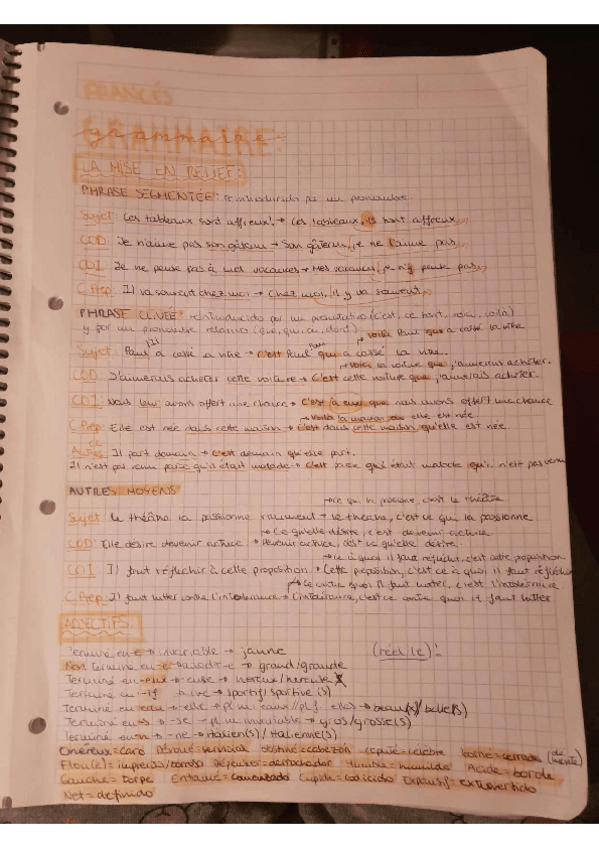 FRANCÉS
GRAMMAIRE:
LA MISE EN RELIEF:
PHRASE SEGMENTÉE: reintroducido por un pronombre
Sujet: Ces tableaux sont affreux! → Ces tableaux, ils sont affreux
COD: Je n'aime pas son gâteau → Son gâteau, je ne l'aime pas
COI: Je ne pense pas à mes vacances → Mes vacances, je n'y pense pas
C.Prép: Il va souvent chez moi → Chez moi, il y va souvent
PHRASE CLIVÉE: reintroducido por un presentativo (c'est, ce sont, voici, voilà)
y por un pronombre relativo (que, qui, où, dont)
→ Voilà Paul qui a cassé la vitre
Sujet: Paul a cassé la vitre → C'est Paul qui a cassé la vitre.
→ Voilà la voiture que j'aimerais acheter.
COD: J'aimerais acheter cette voiture → C'est cette voiture que j'aimerais acheter.
COI: Nous leur avons offert une chance → C'est à eux que nous avons offert une chance
→ Voilà la maison où elle est née.
C.Prép: Elle est née dans cette maison → C'est dans cette maison qu'elle est née.
Autres: Il part demain → C'est demain qu'il part.
Il n'est pas venu parce qu'il était malade → C'est parce qu'il était malade qu'il n'est pas venu
AUTRES MOYENS
→ Ce qui la passionne, c'est le théâtre
Sujet: Le théâtre la passionne vraiment → Le théâtre, c'est ce qui la passionne
→ Ce qu'elle désire, c'est devenir actrice
COD: Elle désire devenir actrice → Devenir actrice, c'est ce qu'elle désire.
→ Ce à quoi il faut réfléchir, c'est cette proposition
COI: Il faut réfléchir à cette proposition → Cette proposition, c'est ce à quoi il faut réfléchir
→ Ce contre quoi il faut lutter, c'est l'intolérance
C.Prép: Il faut lutter contre l'intolérance → L'intolérance, c'est ce contre quoi il faut lutter
ADJECTIFS:
Terminé en -e → invariable → jaune (réel/le)!
Non terminé en -e → grand/grande
Terminé en -eux → -euse →
Terminé en -if → -ive → sportif/sportive (s)
Terminé en -eau → -elle → beau(x)/belle(s)
Terminé en -s → -se → pl. m. invariable → gros/grosse(s)
Terminé en -n → -ne → italien(s)/italienne(s)
Onéreux=caro Dévoué=servicial obstiné=cabezón réputé=célebre borné=cerrado (de mente)
Flou(e)=impreciso/borroso dépensier=derrochador Humble=humilde Acide=borde
Gauche=torpe Entamé=comenzado Cupide=codicioso Expansif=extrovertido
Net=definido